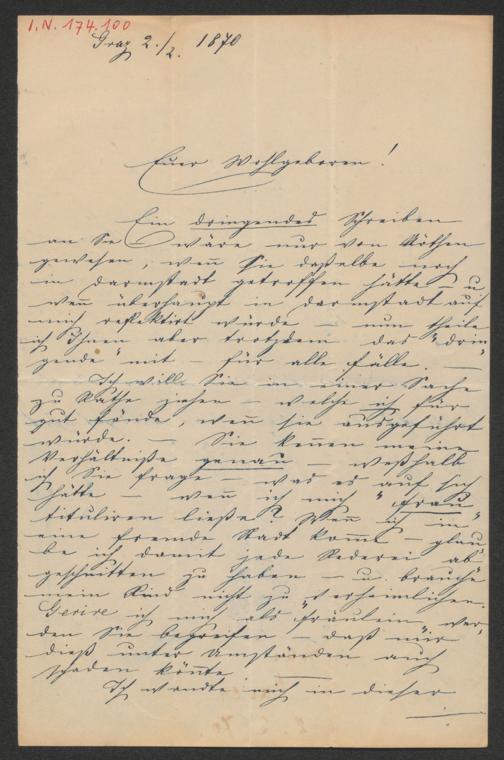 I.N. 174.100
Graz 2./2. 1870
Euer Wohlgeboren!
Ein dringendes Schreiben
an Sie – wäre nur von Nöthen
gewesen, wenn Sie daßelbe noch
in Darmstadt getroffen hätte – u
wenn überhaupt in Darmstadt auf
mich reflektirt würde – nun theile
ich Ihnen aber trotzdem das "drin-
gende" mit – für alle Fälle. –
Ich will Sie in einer Sache
zu Rathe ziehen – welche ich für
gut fände, wenn sie ausgeführt
würde. – Sie kennen meine
Verhältniße genau – weßhalb
ich Sie frage – was es auf sich
hätte – wenn ich mich "Frau"
tituliren ließe? Wenn ich in
eine fremde Stadt komme – glau-
be ich damit jede Rederei ab-
geschnitten zu haben – u. brauche
mein Kind nicht zu verheimlichen.
Gerire ich mich als "Fräulein", wer-
den Sie begreifen – daß mir
dieß unter Umständen auch
schaden könnte
Ich wandte mich in dieser